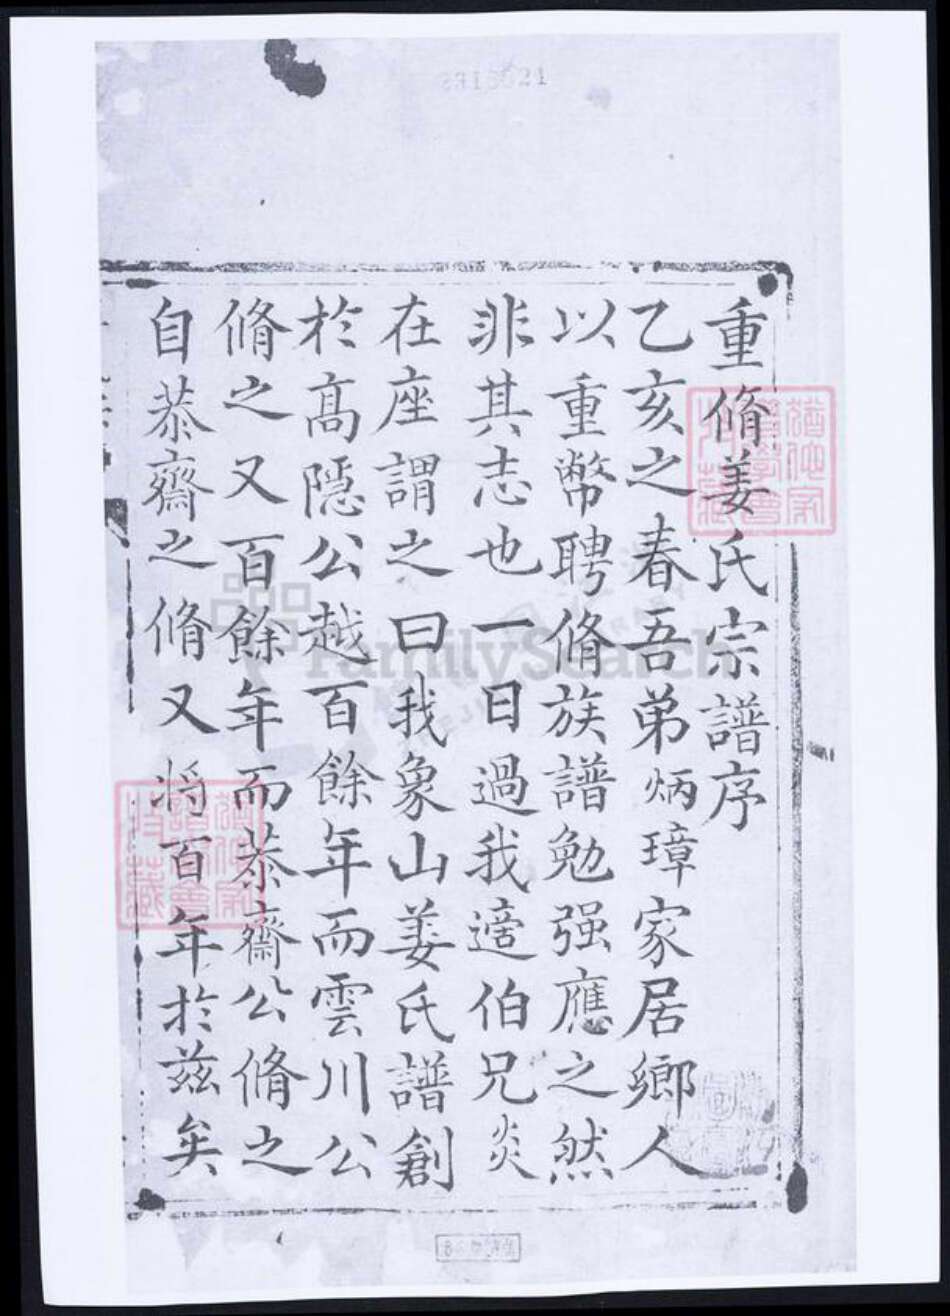 重脩姜氏宗譜序
乙亥之春吾弟炳璋家居鄉人
以重幣聘脩族譜勉强應之然
非其志也一日過我適伯兄炎
在座謂之曰我象山姜氏譜創
於髙隱公越百餘年而雲川公
脩之又百餘年而恭齋公脩之
自恭齋之脩又將百年於兹矣
FamilySearch